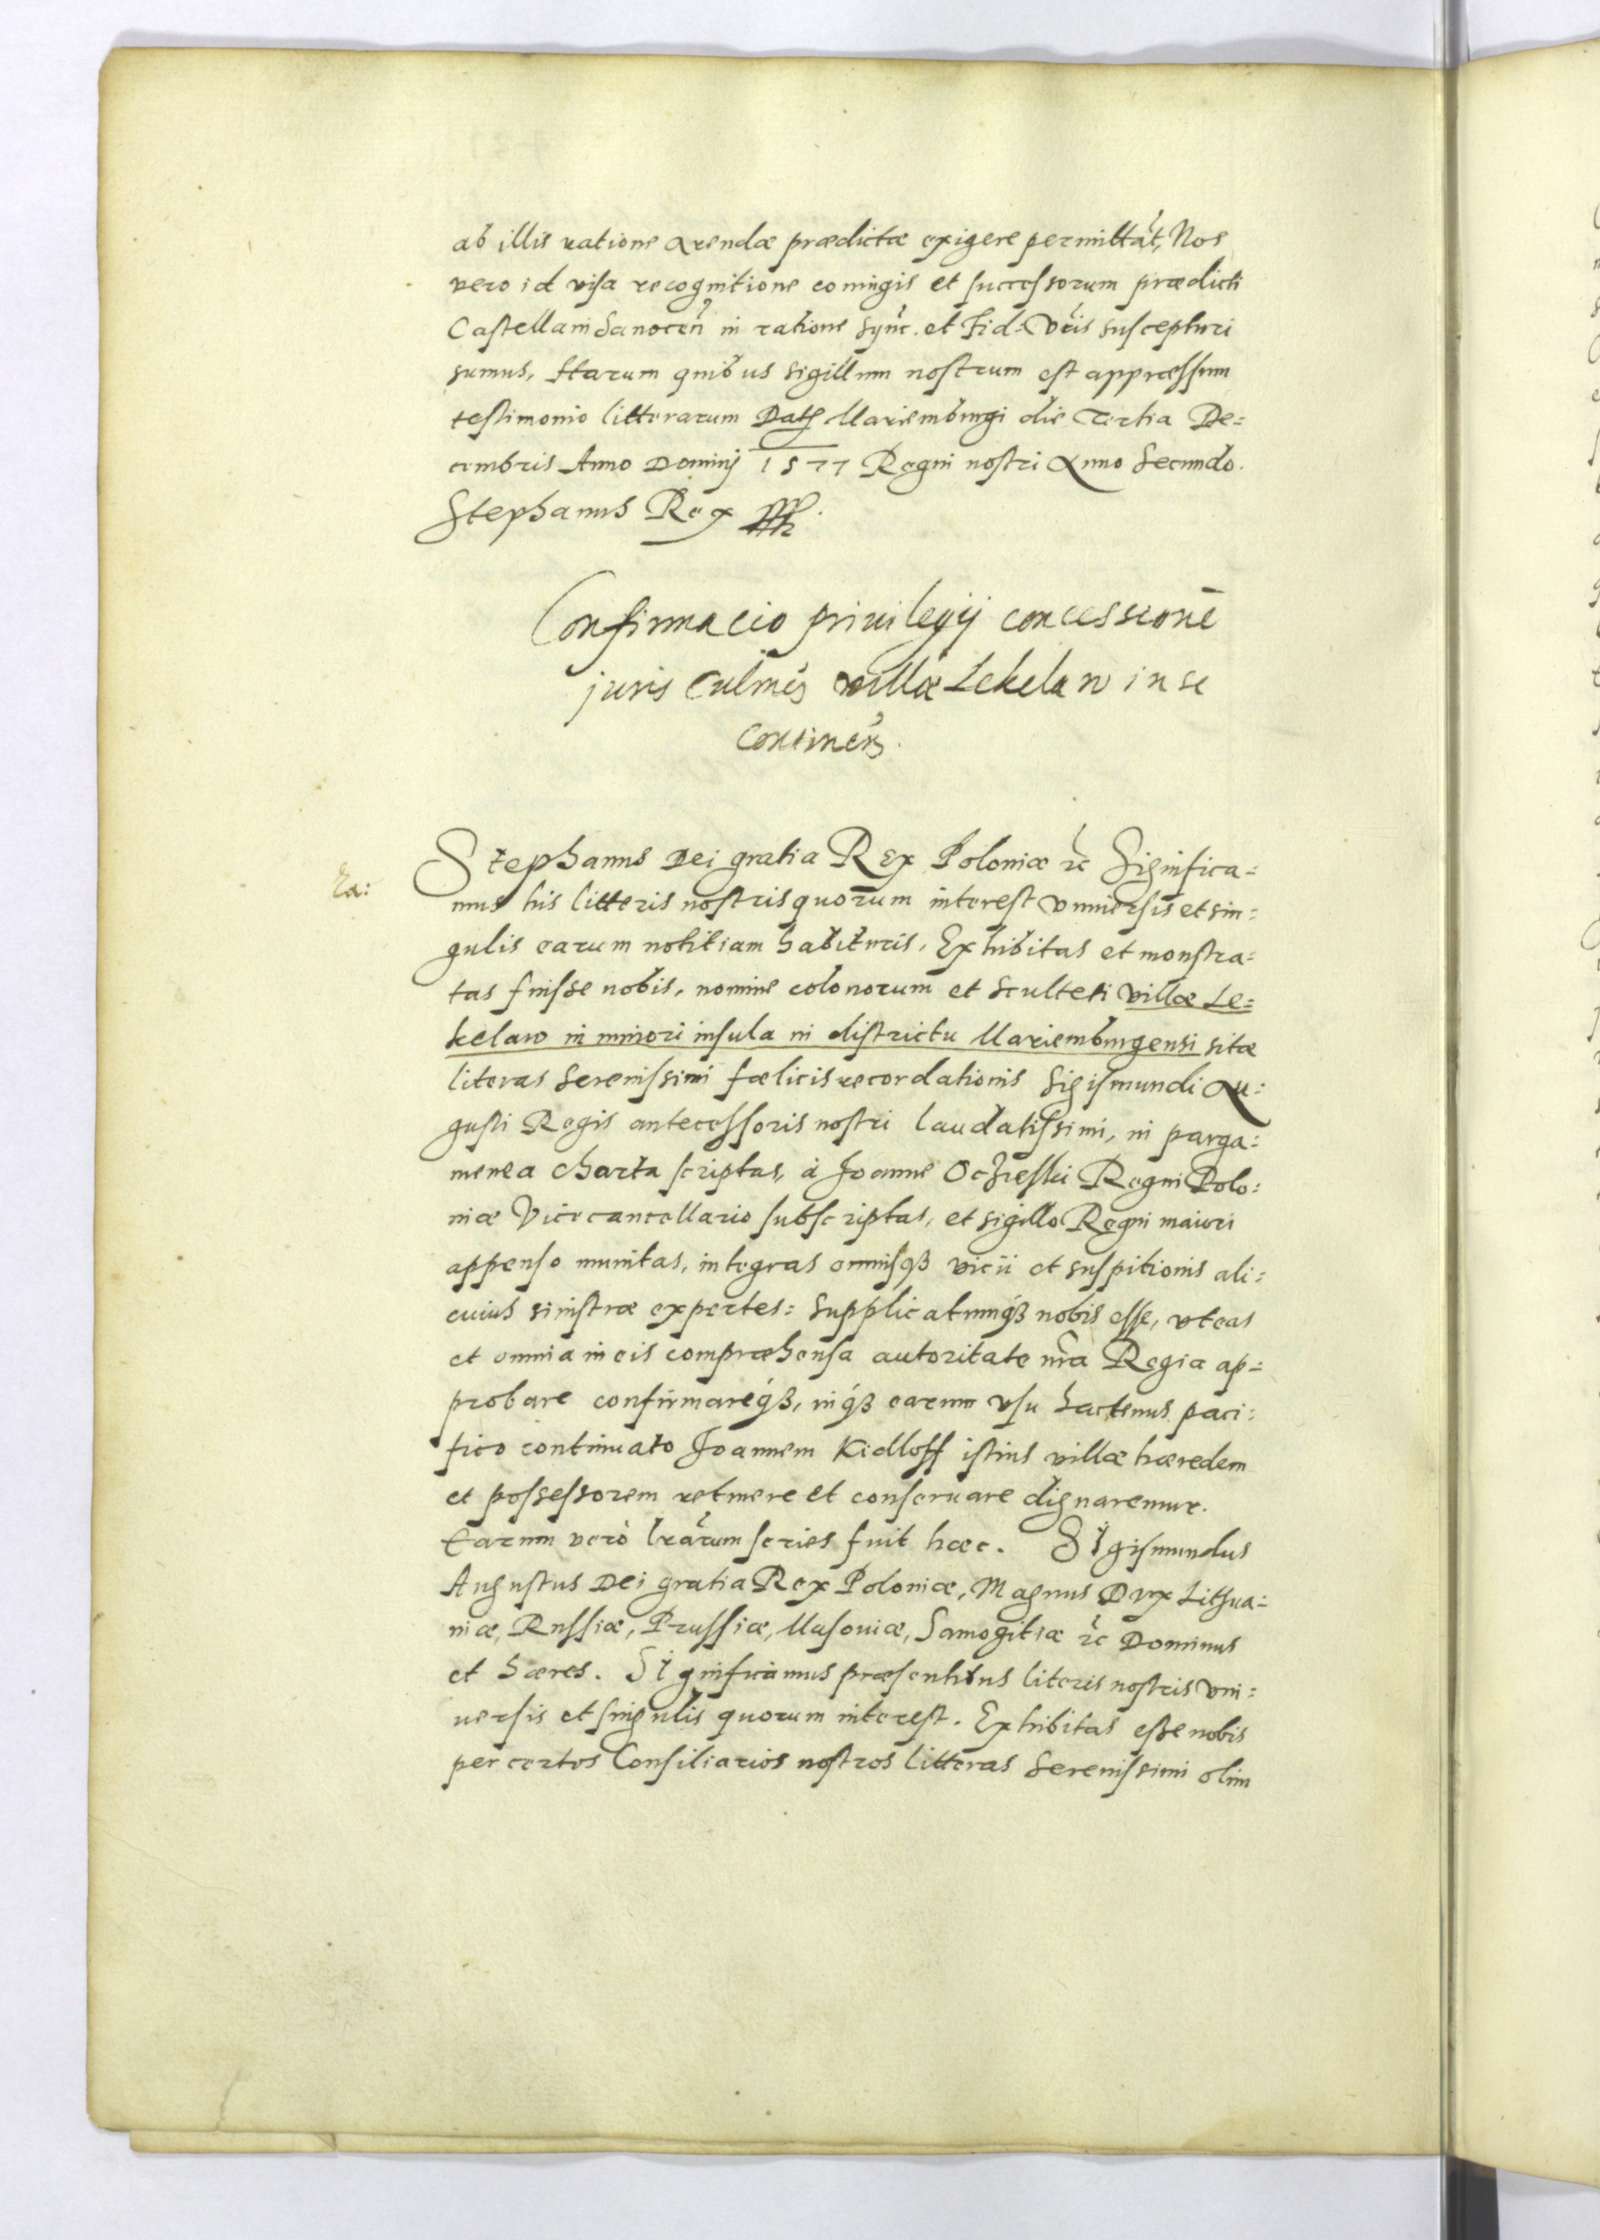 ab illis ratione arendæ prædictæ exigere permittat, Nos
vero id visa recognitione coniugis et successorum prædicti
Castellani Sanocen̄ in ratione Sync. et Fid: Vr̄is suscepturi
sumus, Harum quibus sigillum nostrum est appressum
testimonio litterarum Datę Mariemburgi die Tertia De=
cembris Anno Dominij 1577 Regni nostri Anno Secundo.
Stephanus Rex
Confirmacio priuilegij concessionē
juris Culmeñ villæ Lekelaw in se
continens.
Ra:
Stephanus Dei gratia Rex Poloniæ ꝛc Significa=
mus his litteris nostris quorum interest vniuersis et sin=
gulis earum notitiam habituris, Exhibitas et monstra=
tas fuisse nobis, nomine colonorum et Sculteti villæ Le=
kelaw in minori insula in districtu Mariemburgensi sitæ
literas Serenissimi fœlicis recordationis Sigismundi Au=
gusti Regis antecessoris nostri laudatissimi, in parga=
menea charta scriptas, à Joanne Oczieski Regni Polo=
niæ Vicecancellario subscriptas, et sigillo Regni maiori
appenso munitas, integras omnisqꝫ vicii et suspitionis ali=
cuius sinistræ expertes: supplicatumqꝫ nobis esse, vt eas
et omnia in eis compræhensa autoritate nr̄a Regia ap=
probare confirmareqꝫ, inqꝫ earum vsu hactenus paci=
fico continuato Joannem Kidloff istius villæ hæredem
et possessorem retinere et conseruare dignaremur.
Earum verò lr̄arum series fuit hæc. Sigismundus
Augustus Dei gratia Rex Poloniæ, Magnus Dux Lithua=
niæ, Russiæ, Prussiæ, Masouiæ, Samogitiæ ꝛc Dominus
et hæres. Significamus præsentibus literis nostris vni=
uersis et singulis quorum interest. Exhibitas esse nobis
per certos Consiliarios nostros litteras Serenissimi olim